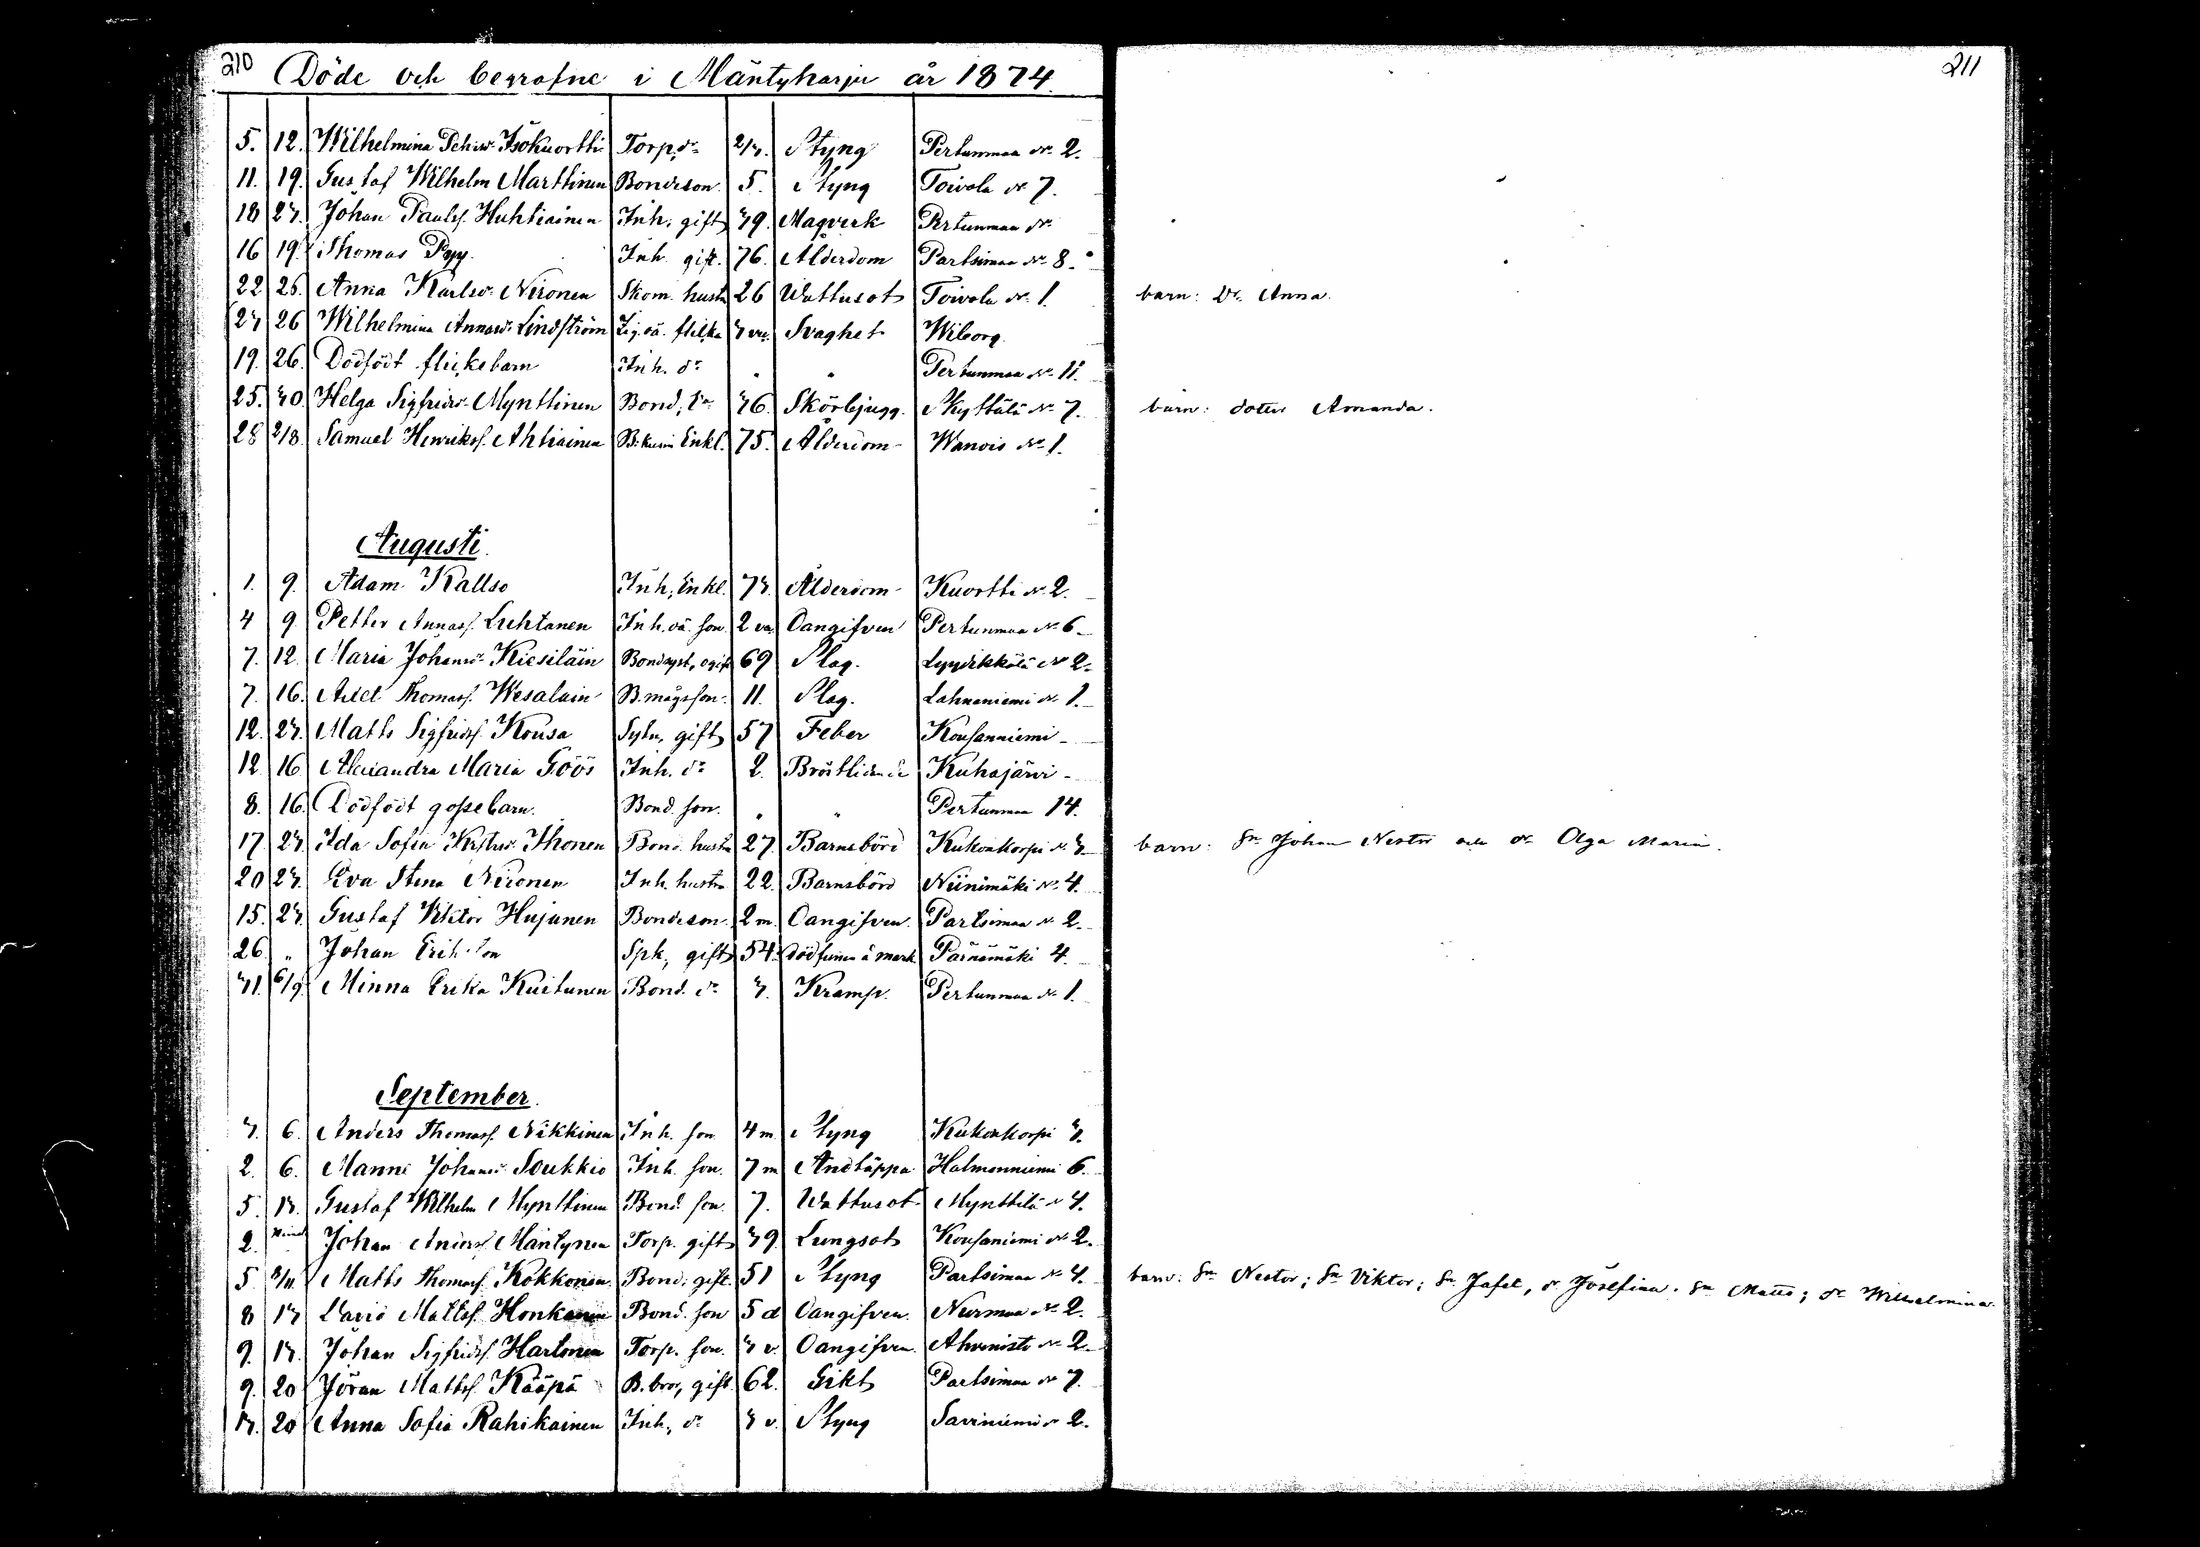 210
Döde och begrafne i Mäntyharju år 1874.
5. 12. Wilhelmina Isokuortti Torp. dr 2/3. Styng Pertunmaa No 2.
11. 19. Gustaf Wilhelm Marttinen Bondeson 5. Styng Toivola No 7.
18 23. Johan Paulsf. Huhtiainen Inh. gift 39. Magverk Pertunmaa No
16 19. Thomas Inh. gift. 76. Ålderdom Partsimaa No 8.
22 26. Anna Karlsdr Nironen Skom. hustr 26 Wattusot Toivola No 1.
23 26 Wilhelmina Annasdr Lindström flicka 3 Svaghet Wiborg
19. 26. Dödfödt flickebarn Inh. dr " " Pertunmaa No 11.
25. 30. Helga Sigfridsdr Mynttinen Bond. 36. Skörbjugg. Kyttälä No 7.
28 2/8. Samuel Henriksf. Ahtiainen Enkl. 75. Ålderdom Wanois No 1.
Augusti.
1. 9. Adam Kallso Inh, Enkl. 73. Ålderdom Kuortti No 2.
4 9. Petter Annasf. Luhtanen Inh. oä. son 2 va Oangifven Pertunmaa No 6.
7. 12. Maria Johansdr Kiesiläin 69 Slag. Lyydikkälä No 2.
7. 16. Axel Thomasf. Wesalain B. mågsson. 11. Slag. Lahnaniemi No 1.
12. 23. Matts Sigfridsf. Kousa Sytn, gift 57 Feber Kousanniemi
12 16 Alexandra Maria Göös Inh. dr 2. Bröstlidande Kuhajärvi
8. 16. Dödfödt gossebarn. Bond. son. " " Pertunmaa 14.
17 23. Ida Sofia Ihonen Bond. hustr 27. Barnsbörd Kukonkorpi No 3.
20 23. Eva Stina Nironen Inh. hustr 22. Barnsbörd Niinimäki No 4.
15. 23. Gustaf Viktor Hujanen Bondeson 2 m. Oangifven Partsimaa No 2.
26. " Johan Erikson Spk, gift 54. Pärnämäki 4.
31. 6/9. Minna Erika Kuitunen Bond. dr 3. Kramp. Pertunmaa No 1.
September.
3. 6. Anders Thomasf. Nikkinen Inh. son 4 m Styng Kukonkorpi 3.
2. 6. Manne Johansf. Soukkio Inh. son. 7 m Andtäppa Halmenniemi 6.
5. 13. Gustaf Wilhelm Mynttinen Bond. son. 7. Wattusot Mynttilä No 4.
2. Johan Andersf. Mäntynen Torp. gift 39. Lungsot Kousaniemi No 2.
5 Matts Thomasf. Kokkonen Bond. gift. 51 Styng Partsimaa No 4.
8 13 David Mattsf. Honkanen Bond. son 5 d Oangifven. Nurmaa No 2.
9. 13. Johan Sigfridsf. Hartonen Torp. son. 3 v. Oangifven Ahvenisto No 2.
9. 20 Jöran Mattsf. Kääpä B. bror, gift. 62. Gikt Partsimaa No 7.
13. 20 Anna Sofia Rahikainen Inh, dr 3 v. Styng Saviniemi No 2.
211
barn: Dr. Anna.
barn: doter Amanda.
barn: Sn Johan Nestor och dr Olga Maria.
barn: Sn Nestor; Sn Viktor; Sn Jafet, dr Josefina. Sn Matts; dr Wilhelmina.